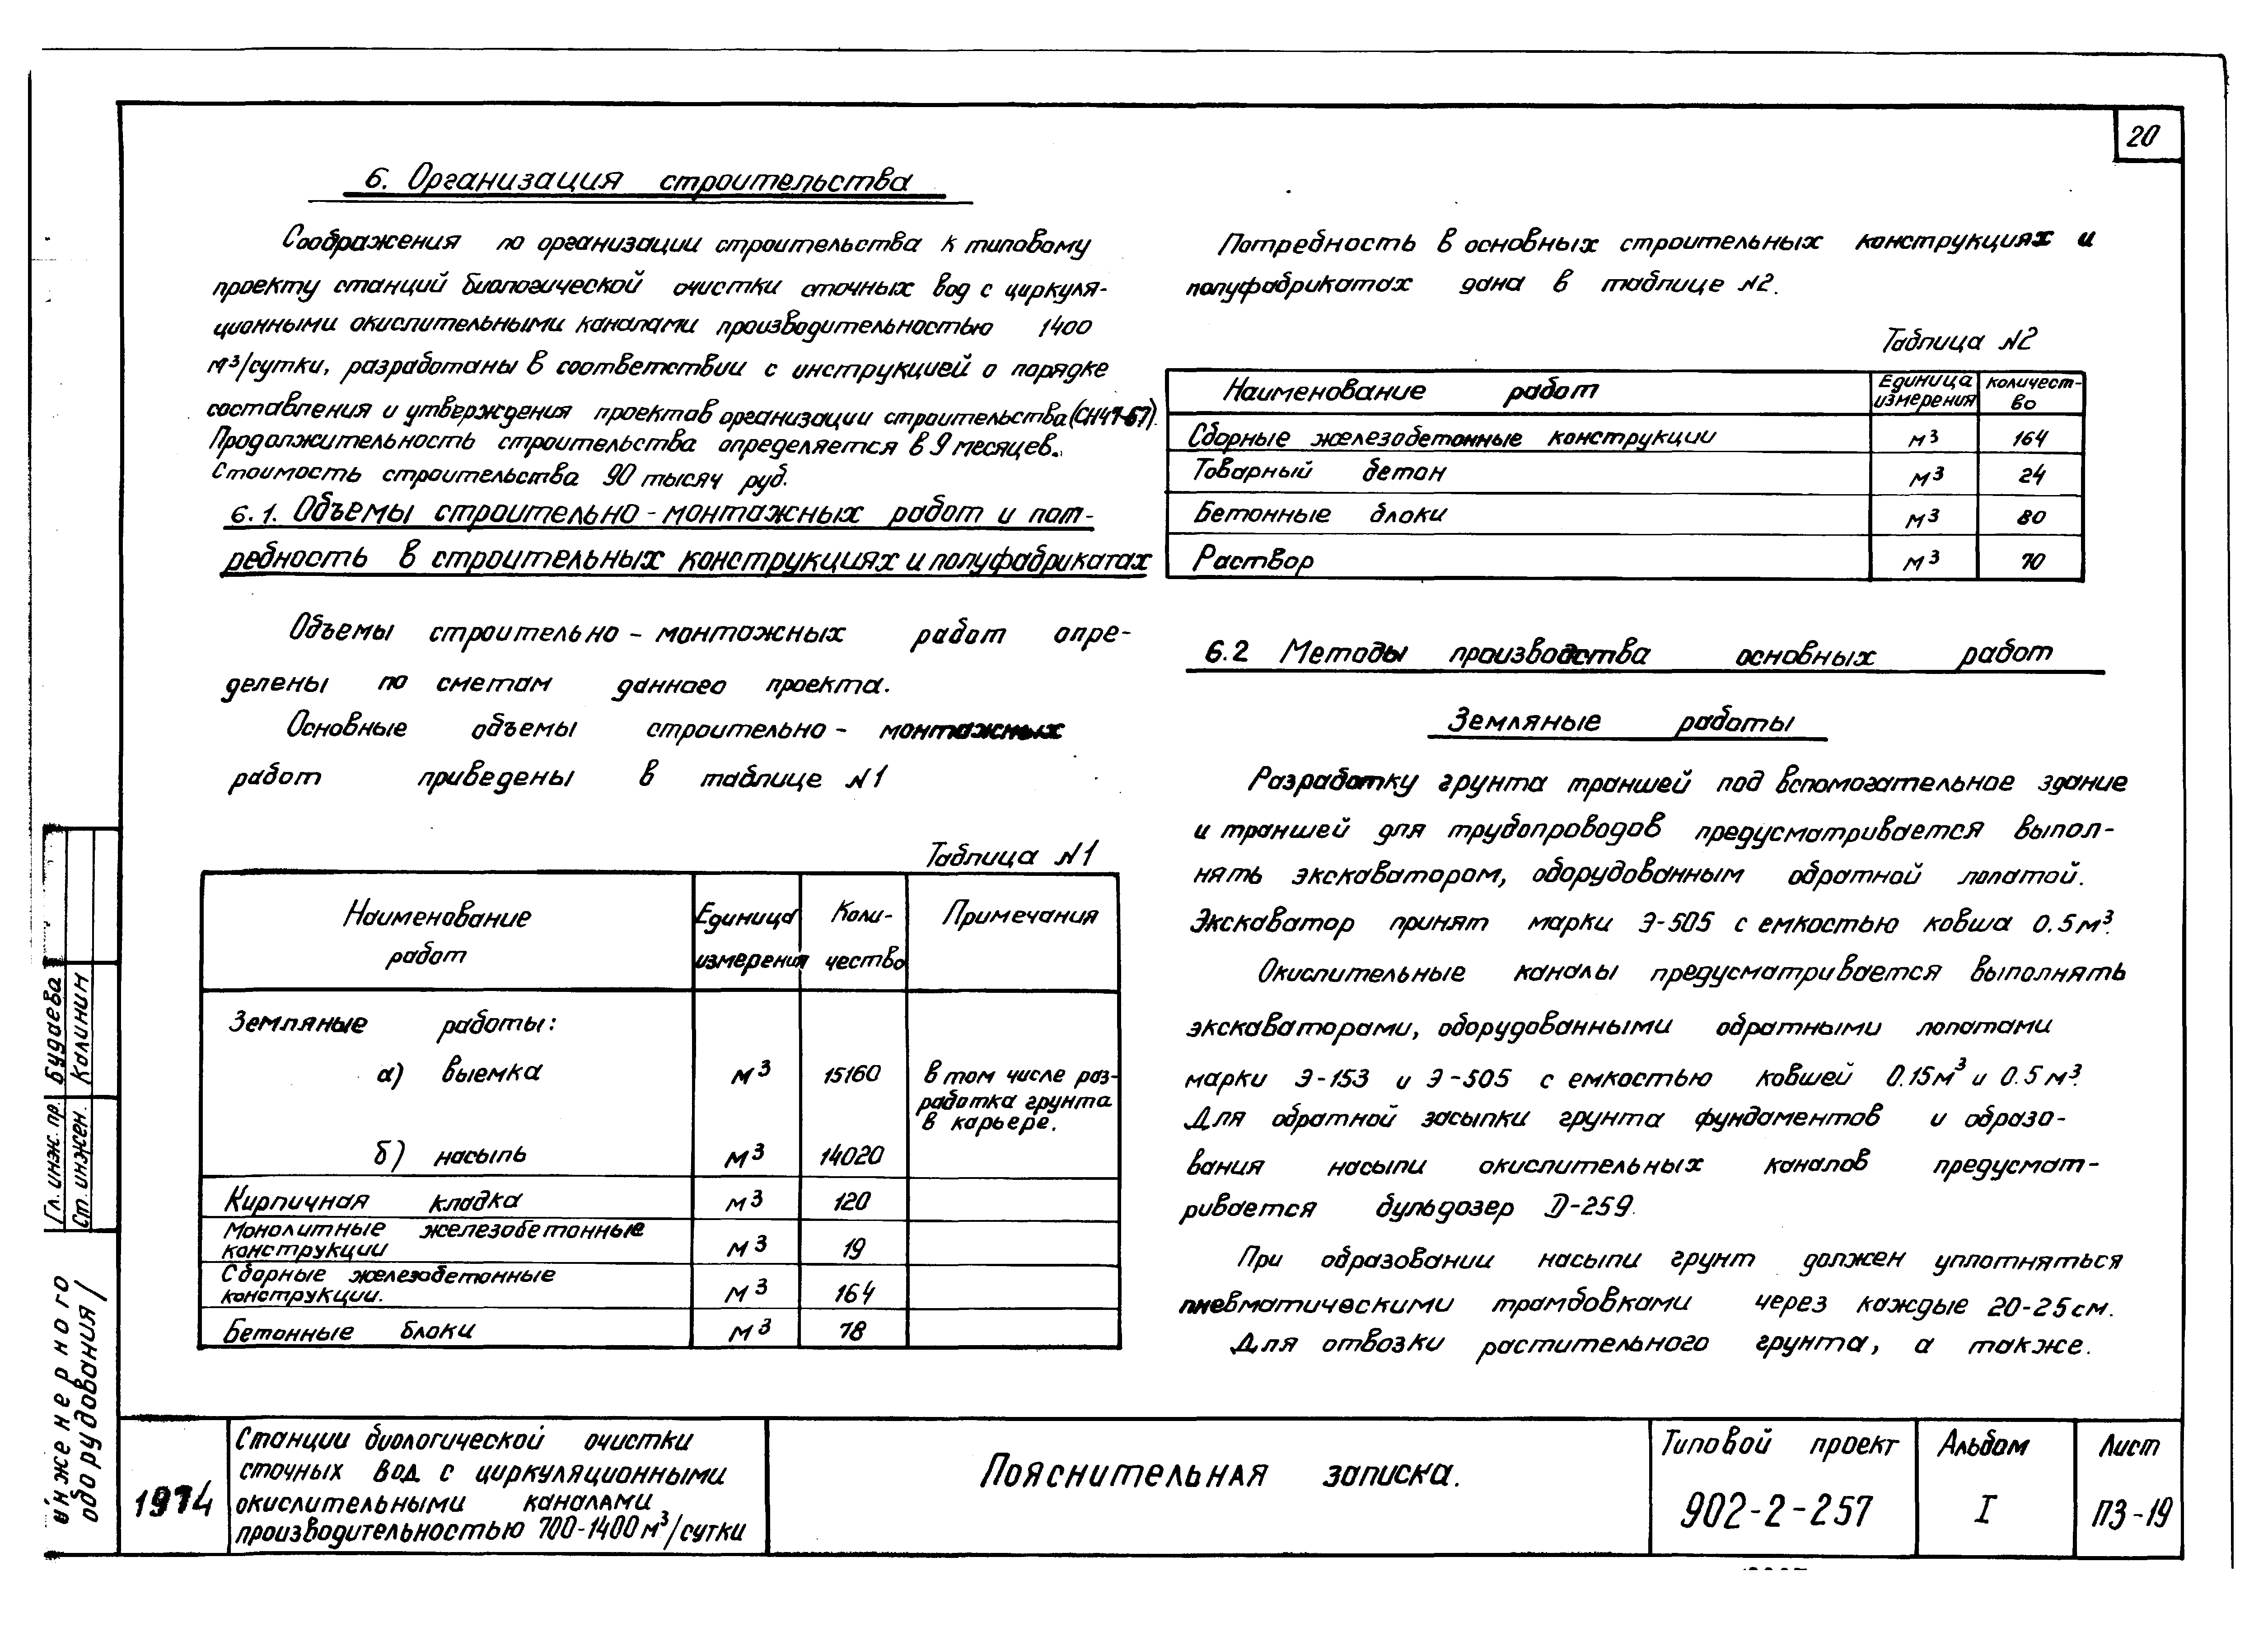 20
6. Организация строительства
Соображения по организации строительства к типовому
проекту станций биологической очистки сточных вод с циркуля-
ционными окислительными каналами производительностью 1400
м³/сутки, разработаны в соответствии с инструкцией о порядке
составления и утверждения проектов организации строительства (СН47-67).
Продолжительность строительства определяется в 9 месяцев.
Стоимость строительства 90 тысяч руб.
6.1. Объемы строительно-монтажных работ и пот-
ребность в строительных конструкциях и полуфабрикатах
Объемы строительно-монтажных работ опре-
делены по сметам данного проекта.
Основные объемы строительно-монтажных
работ приведены в таблице N1
Таблица N1
Наименование работ Единица измерения Коли-чество Примечания
Земляные работы:
а) выемка м³ 15160 в том числе раз-
работка грунта
в карьере.
б) насыпь м³ 14020
Кирпичная кладка м³ 120
Монолитные железобетонные
конструкции м³ 19
Сборные железобетонные
конструкции. м³ 164
Бетонные блоки м³ 78
Потребность в основных строительных конструкциях и
полуфабрикатах дана в таблице N2.
Таблица N2
Наименование работ Единица измерения количест-во
Сборные железобетонные конструкции м³ 164
Товарный бетон м³ 24
Бетонные блоки м³ 80
Раствор м³ 70
6.2 Методы производства основных работ
Земляные работы
Разработку грунта траншей под вспомогательное здание
и траншей для трубопроводов предусматривается выпол-
нять экскаватором, оборудованным обратной лопатой.
Экскаватор принят марки Э-505 с емкостью ковша 0.5м³.
Окислительные каналы предусматривается выполнять
экскаваторами, оборудованными обратными лопатами
марки Э-153 и Э-505 с емкостью ковшей 0.15м³ и 0.5м³.
Для обратной засыпки грунта фундаментов и образо-
вания насыпи окислительных каналов предусмат-
ривается бульдозер Д-259.
При образовании насыпи грунт должен уплотняться
пневматическими трамбовками через каждые 20-25см.
Для отвозки растительного грунта, а также.
Гл. инж. пр. Будаева
Ст. инжен. Калинин
инженерного
оборудования/
1974
Станции биологической очистки
сточных вод с циркуляционными
окислительными каналами
производительностью 700-1400м³/сутки
Пояснительная записка.
Типовой проект
902-2-257
Альбом
I
Лист
ПЗ-19